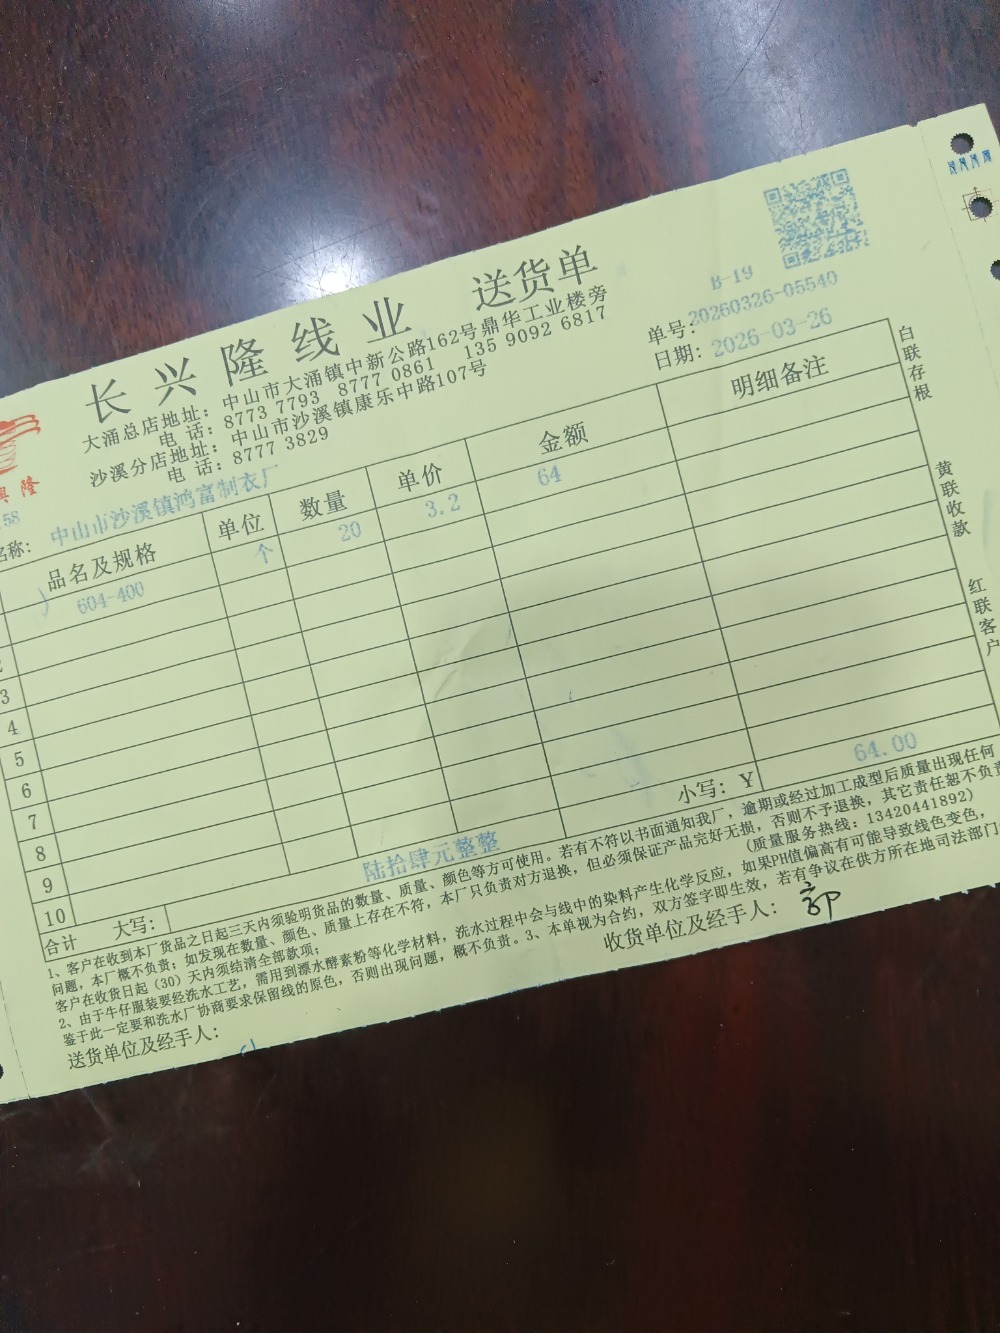 B-19
长兴隆线业 送货单
大涌总店地址: 中山市大涌镇中新公路162号鼎华工业楼旁
电 话: 8773 7793 8777 0861 135 9092 6817
沙溪分店地址: 中山市沙溪镇康乐中路107号
电 话: 8777 3829
单号: 20260326-05540
日期: 2026-03-26
興隆
58
名称: 中山市沙溪镇鸿富制衣厂
品名及规格 单位 数量 单价 金额 明细备注
604-400 个 20 3.2 64
2
3
4
5
6
7
8
9
10
合计 大写: 陆拾肆元整整 小写: ¥ 64.00
1、客户在收到本厂货品之日起三天内须验明货品的数量、质量、颜色等方可使用。若有不符以书面通知我厂，逾期或经过加工成型后质量出现任何
问题，本厂概不负责；如发现在数量、颜色、质量上存在不符，本厂只负责对方退换，但必须保证产品完好无损，否则不予退换，其它责任恕不负责
客户在收货日起（30）天内须结清全部款项； (质量服务热线: 13420441892)
2、由于牛仔服装要经洗水工艺，需用到漂水酵素粉等化学材料，洗水过程中会与线中的染料产生化学反应，如果PH值偏高有可能导致线色变色，
鉴于此一定要和洗水厂协商要求保留线的原色，否则出现问题，概不负责。3、本单视为合约，双方签字即生效，若有争议在供方所在地司法部门
送货单位及经手人: 收货单位及经手人:
白联存根
黄联收款
红联客户